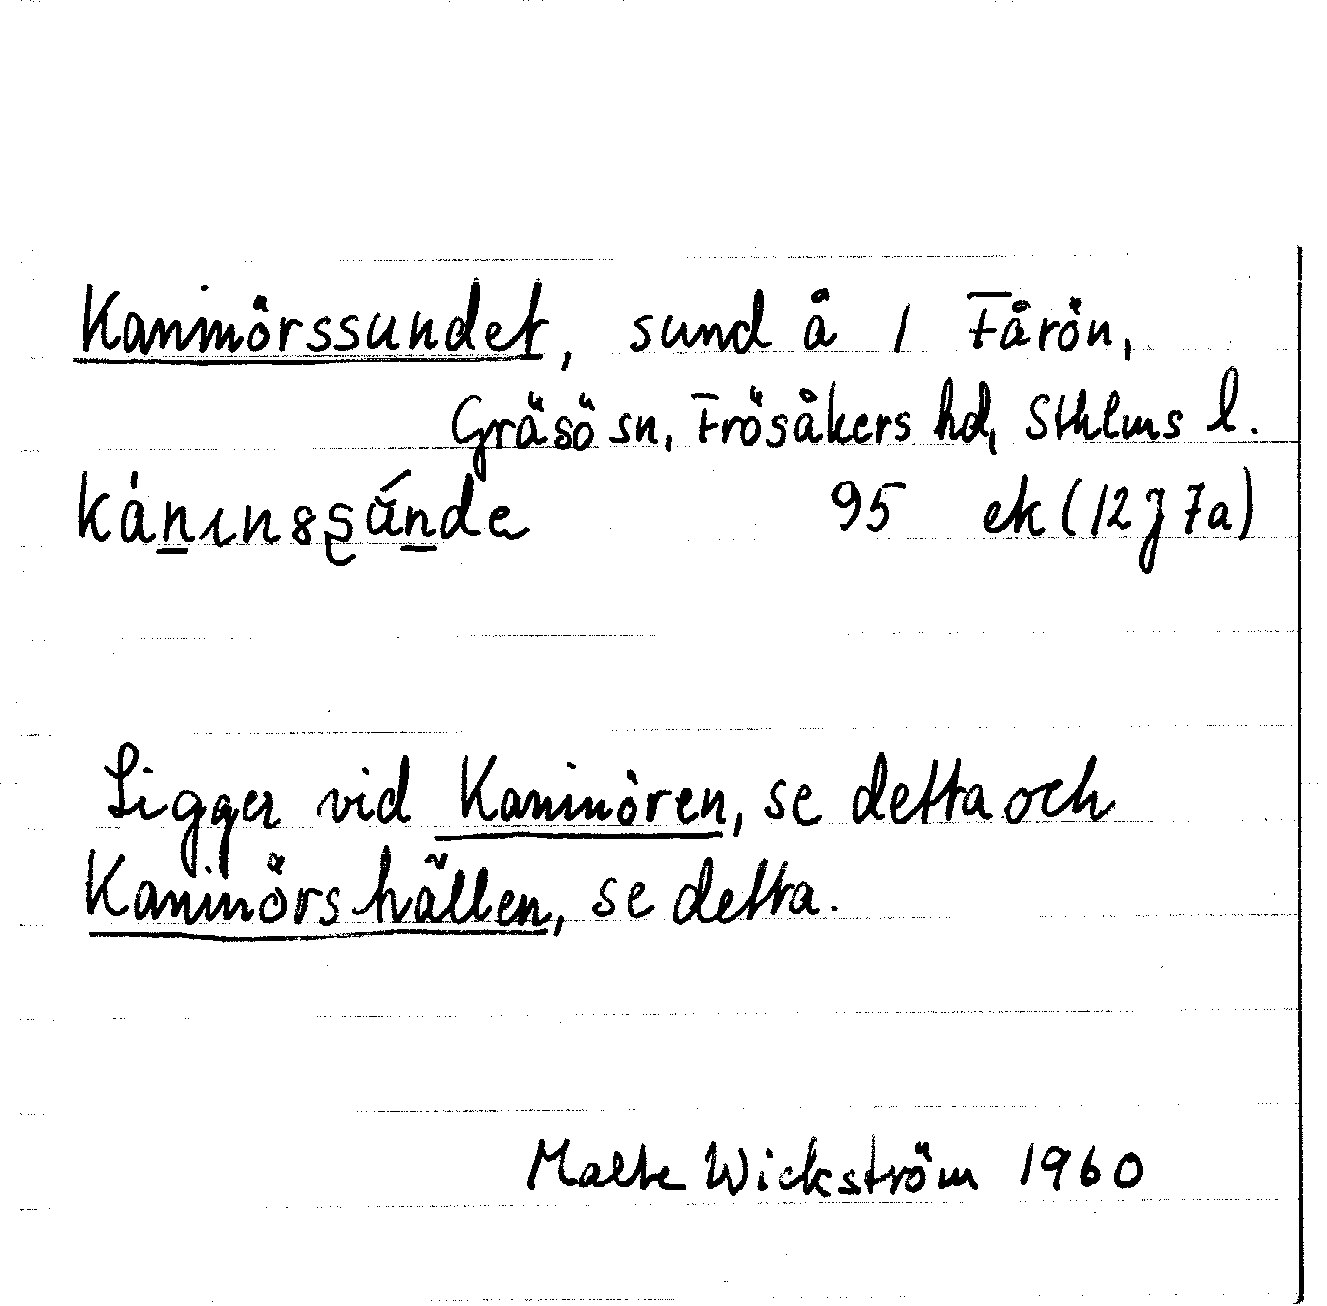 Kaninörssundet, sund å 1 Fårön,
Gräsö sn, Frösåkers hd, Sthlms l.
95 ek (12 j 7a)
Ligger vid Kaninören, se detta och
Kaninörshällen, se detta.
Malte Wickström 1960